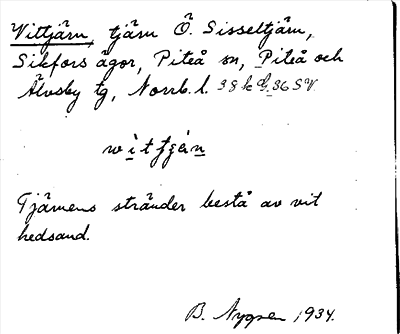 Vittjärn, tjärn Ö. Sisseltjärn,
Sikfors ägor, Piteå sn, Piteå och
Älvsby tg, Norrb. l. 38 k 36 SV
witjján
Tjärnens stränder bestå av vit
hedsand.
B. Nygren 1934.